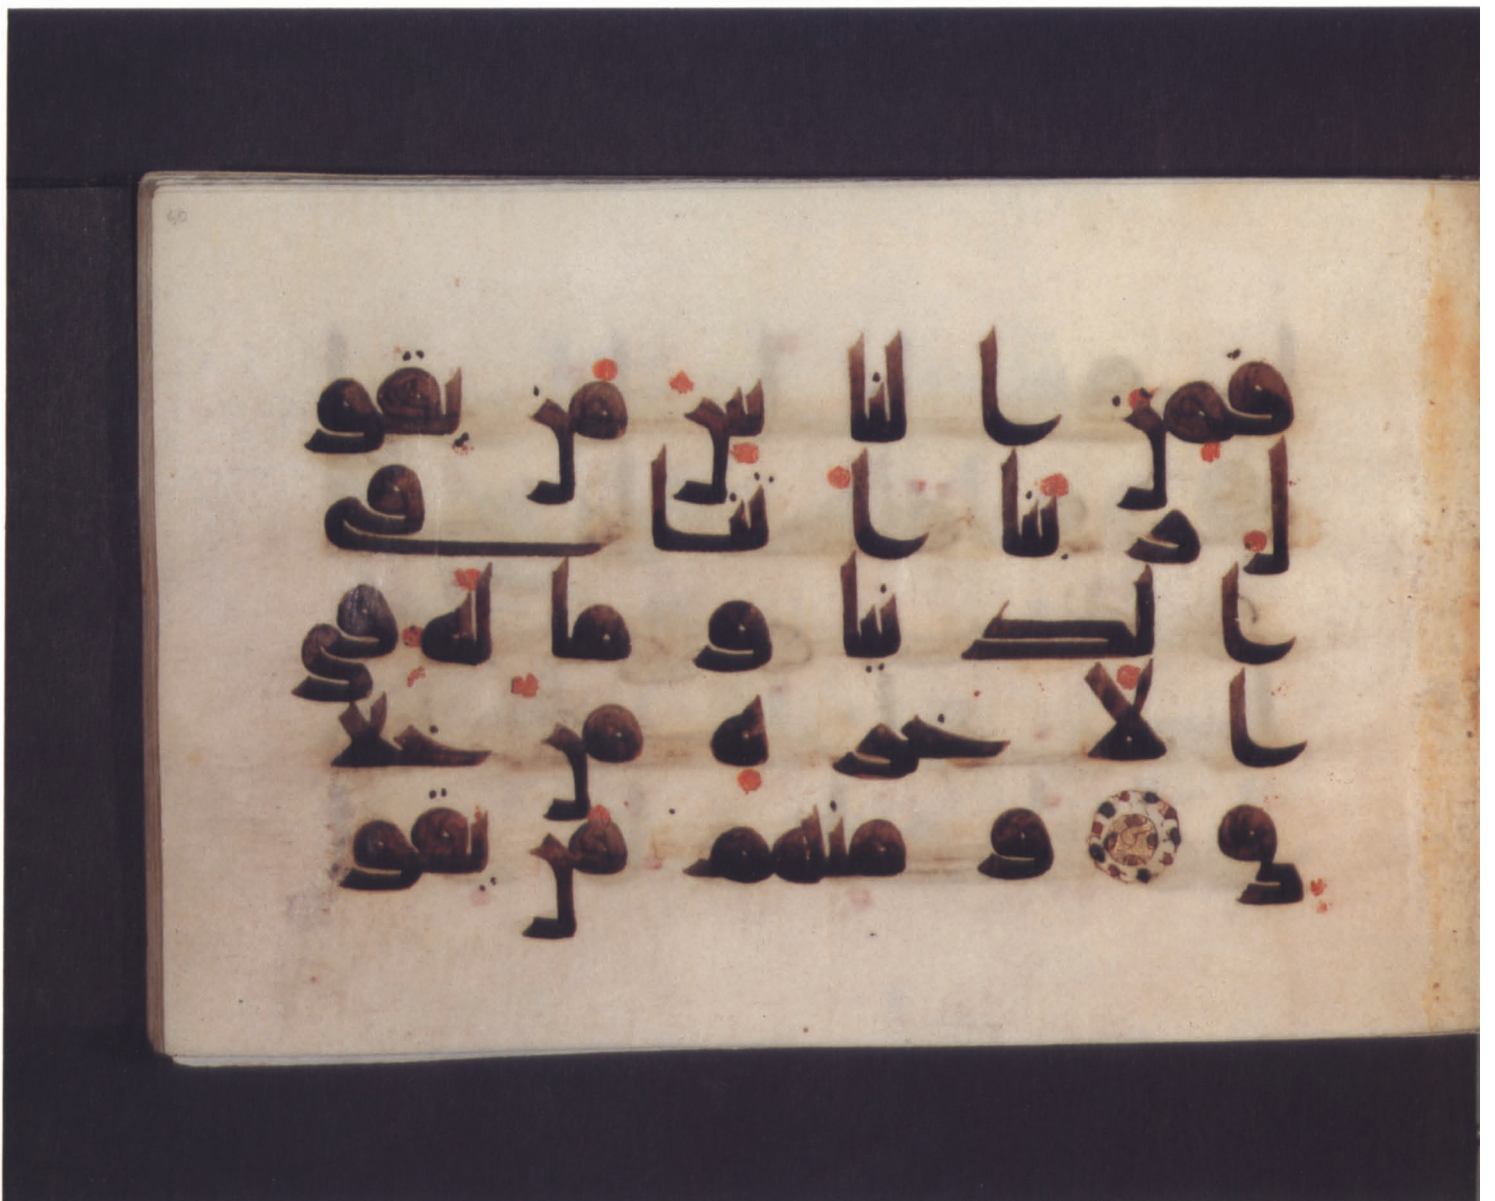 فمن ا لنا س من يقو
ل ر بنا ا تنا في
ا لد نيا و ما له في
ا لا خر ة من خلا
ق و منهم من يقو